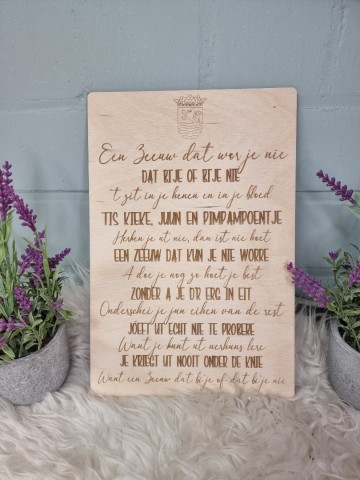 Een Zeeuw dat wor je nie
DAT BIJE OF BIJE NIE
't zit in je henen en in je bloed
TIS KIEKE, JUUN EN PIMPAMPOENTJE
Herken je ut nie, dan ist nie hoet
EEN ZEEUW DAT KUN JE NIE WORRE
A doe je nog zo hoet je best
ZONDER A JE D'R ERG IN EIT
Onderschei je jun eihen van de rest
JOEFT UT ECHT NIE TE PROBERE
Want je kunt ut nerhuns lere
JE KRIEGT UT NOOIT ONDER DE KNIE
Want een Zeeuw dat bi'je of dat bi'je nie